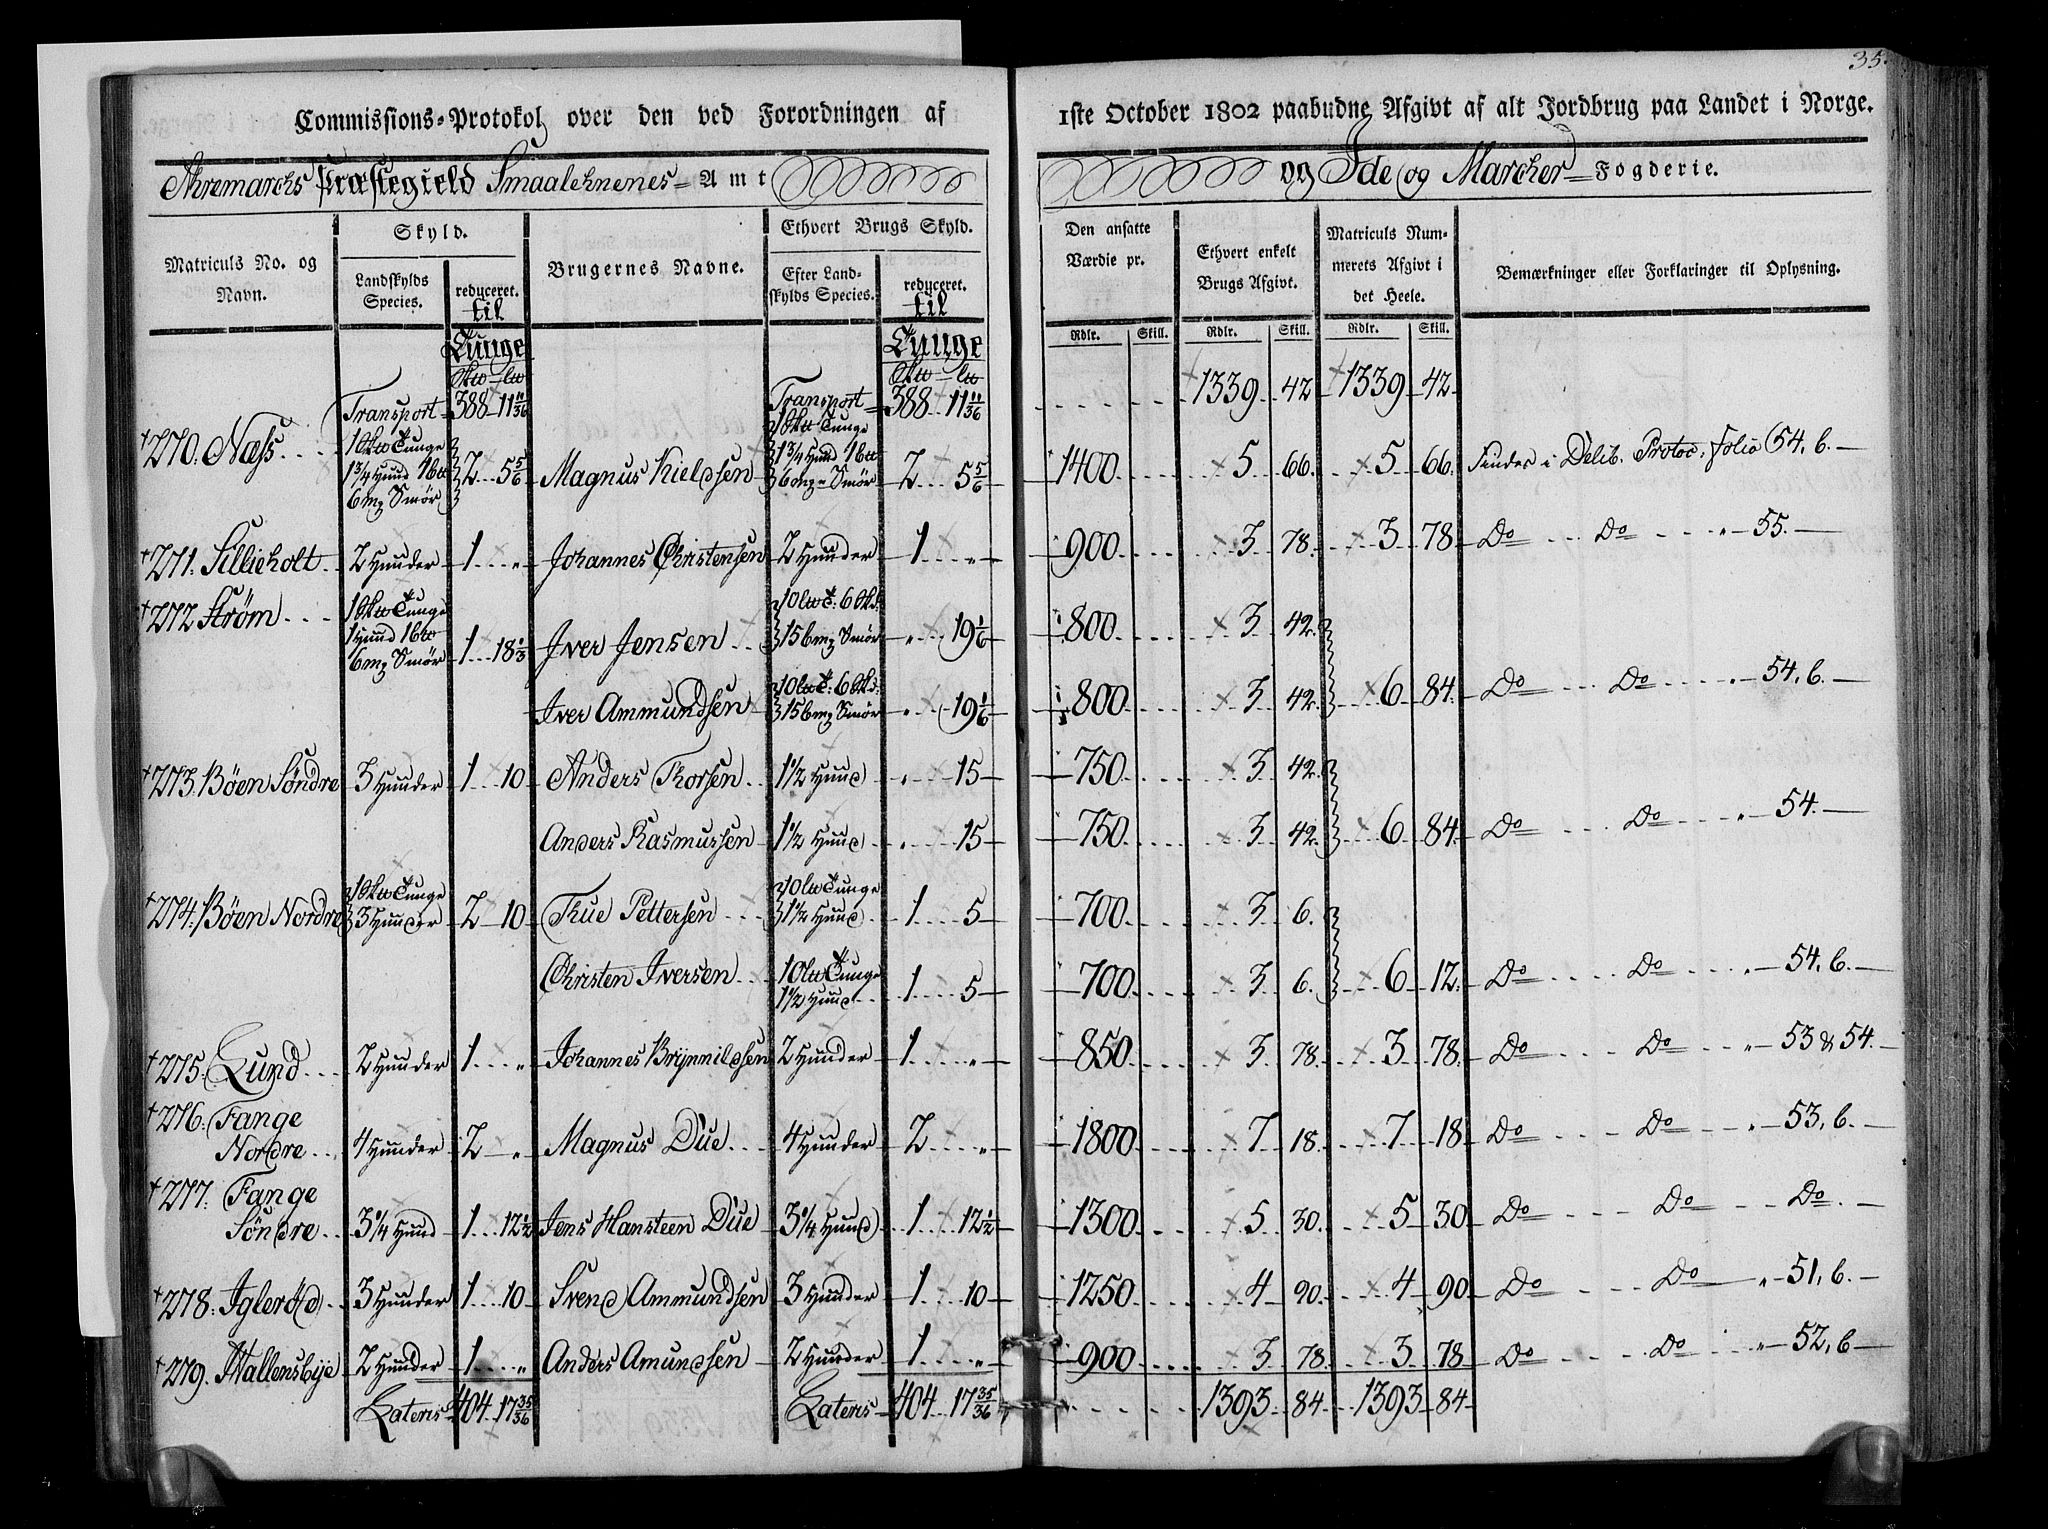 35.
Commissions-Protokol over den ved Forordningen af 1ste October 1802 paabudne Afgivt af alt Jordbrug paa Landet i Norge.
Ahremarchs Præstegield Smaalehnenes Amt og Ide og Marcker Fogderie.
Matriculs No. og Navn. | Skyld. Landskylds Species. | reduceret. til Tunge | Brugernes Navne. | Ethvert Brugs Skyld. Efter Landskylds Species. | reduceret. til Tunge | Den ansatte Værdie pr. Rdlr. Skill. | Ethvert enkelt Brugs Afgivt. Rdlr. Skill. | Matriculs Nummerets Afgivt i det Heele. Rdlr. Skill. | Bemærkninger eller Forklaringer til Oplysning.
Transport 388 11 11/36 Transport 388 11 11/36 1339 42 1339 42
270. Næss 1 Tunge 1 3/4 Hund 6 mz Smör 2 5 5/6 Magnus Kieldsen 1 Tunge 1 3/4 Hund 6 mz Smör 2 5 5/6 1400 5 66. 5 66. Findes i Delib. Protoc. folio 54, b.
271. Sillieholt 2 Hunder 1 „ Johannes Christensen 2 Hunder 1 „ 900 3 78. 3 78 Do Do „ 55.
272 Strøm 1 Tunge 1 Hund 6 mz Smör 1 18 1/3 Iver Jensen „ 19 1/6 800 3 42.
Iver Ammundsen „ 19 1/6 800 3 42. 6 84. Do Do „ 54, b.
273. Böen Söndre 3 Hunder 1 10 Anders Thorsen 1 1/2 Hund „ 15 750 3 42.
Anders Rasmussen 1 1/2 Hund „ 15 750 3 42. 6 84. Do Do „ 54.
274. Böen Nordre 1 Tunge 3 Hunder 2 10 True Pettersen 10 Tunge 1 1/2 Hund 1 5 700 3 6.
Christen Iversen 10 Tunge 1 1/2 Hund 1 5 700 3 6. 6 12. Do Do „ 54, b.
275. Lund 2 Hunder 1 „ Johannes Brynnildsen 2 Hunder 1 „ 850 3 78. 3 78. Do Do „ 53 & 54.
276. Fange Nordre 4 Hunder 2 „ Magnus Due 4 Hunder 2 „ 1800 7 18. 7 18 Do Do „ 53, b.
277. Fange Söndre 3 1/4 Hund 1 12 1/2 Jens Hansteen Due 3 1/4 Hund 1 12 1/2 1300 5 30. 5 30 Do Do Do.
278. Igleröd 3 Hunder 1 10 Svend Ammundsen 3 Hunder 1 10 1250 4 90. 4 90 Do Do „ 51, b.
279. Hallensbye 2 Hunder 1 „ Anders Amundsen 2 Hunder 1 „ 900 3 78. 3 78 Do Do „ 52, b
Lateris 404 17 35/36 Lateris 404 17 35/36 1393 84 1393 84